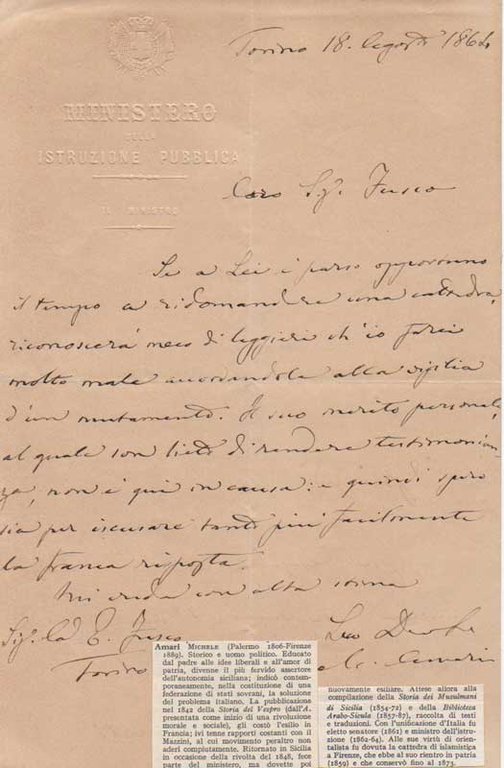 Torino 18. Agosto 1864
MINISTERO
DELLA
ISTRUZIONE PUBBLICA
IL MINISTRO
Caro Sigr. Fusco
Se a Lei è parso opportuno
il tempo a ridomandare una cattedra,
riconoscerà meco di leggieri ch'io farei
molto male accordandola alla vigilia
d'un mutamento. Il suo merito personale,
al quale son lieto di rendere testimonian
za, non è qui in causa: e quindi spero
sia per iscusare tanto più facilmente
la franca risposta.
Mi creda con alta stima
Sigr. E. Fusco
Torino
Suo Devto
M. Amari
Amari MICHELE (Palermo 1806-Firenze
1889). Storico e uomo politico. Educato
dal padre alle idee liberali e all'amor di
patria, divenne il più fervido assertore
dell'autonomia siciliana; indicò contem-
poraneamente, nella costituzione di una
federazione di stati sovrani, la soluzione
del problema italiano. La pubblicazione
nel 1842 della Storia del Vespro (dall'A.
presentata come inizio di una rivoluzione
morale e sociale), gli costò l'esilio in
Francia; ivi tenne rapporti costanti con il
Mazzini, al cui movimento peraltro non
aderì compiutamente. Ritornato in Sicilia
in occasione della rivolta del 1848, fece
parte del ministero, ma dovette poi
nuovamente esiliare. Attese allora alla
compilazione della Storia dei Musulmani
di Sicilia (1854-72) e della Biblioteca
Arabo-Sicula (1857-87), raccolta di testi
e traduzioni. Con l'unificazione d'Italia fu
eletto senatore (1861) e ministro dell'istru-
zione (1862-64). Alle sue virtù di orien-
talista fu dovuta la cattedra di islamistica
a Firenze, che ebbe al suo rientro in patria
(1859) e che conservò fino al 1873.